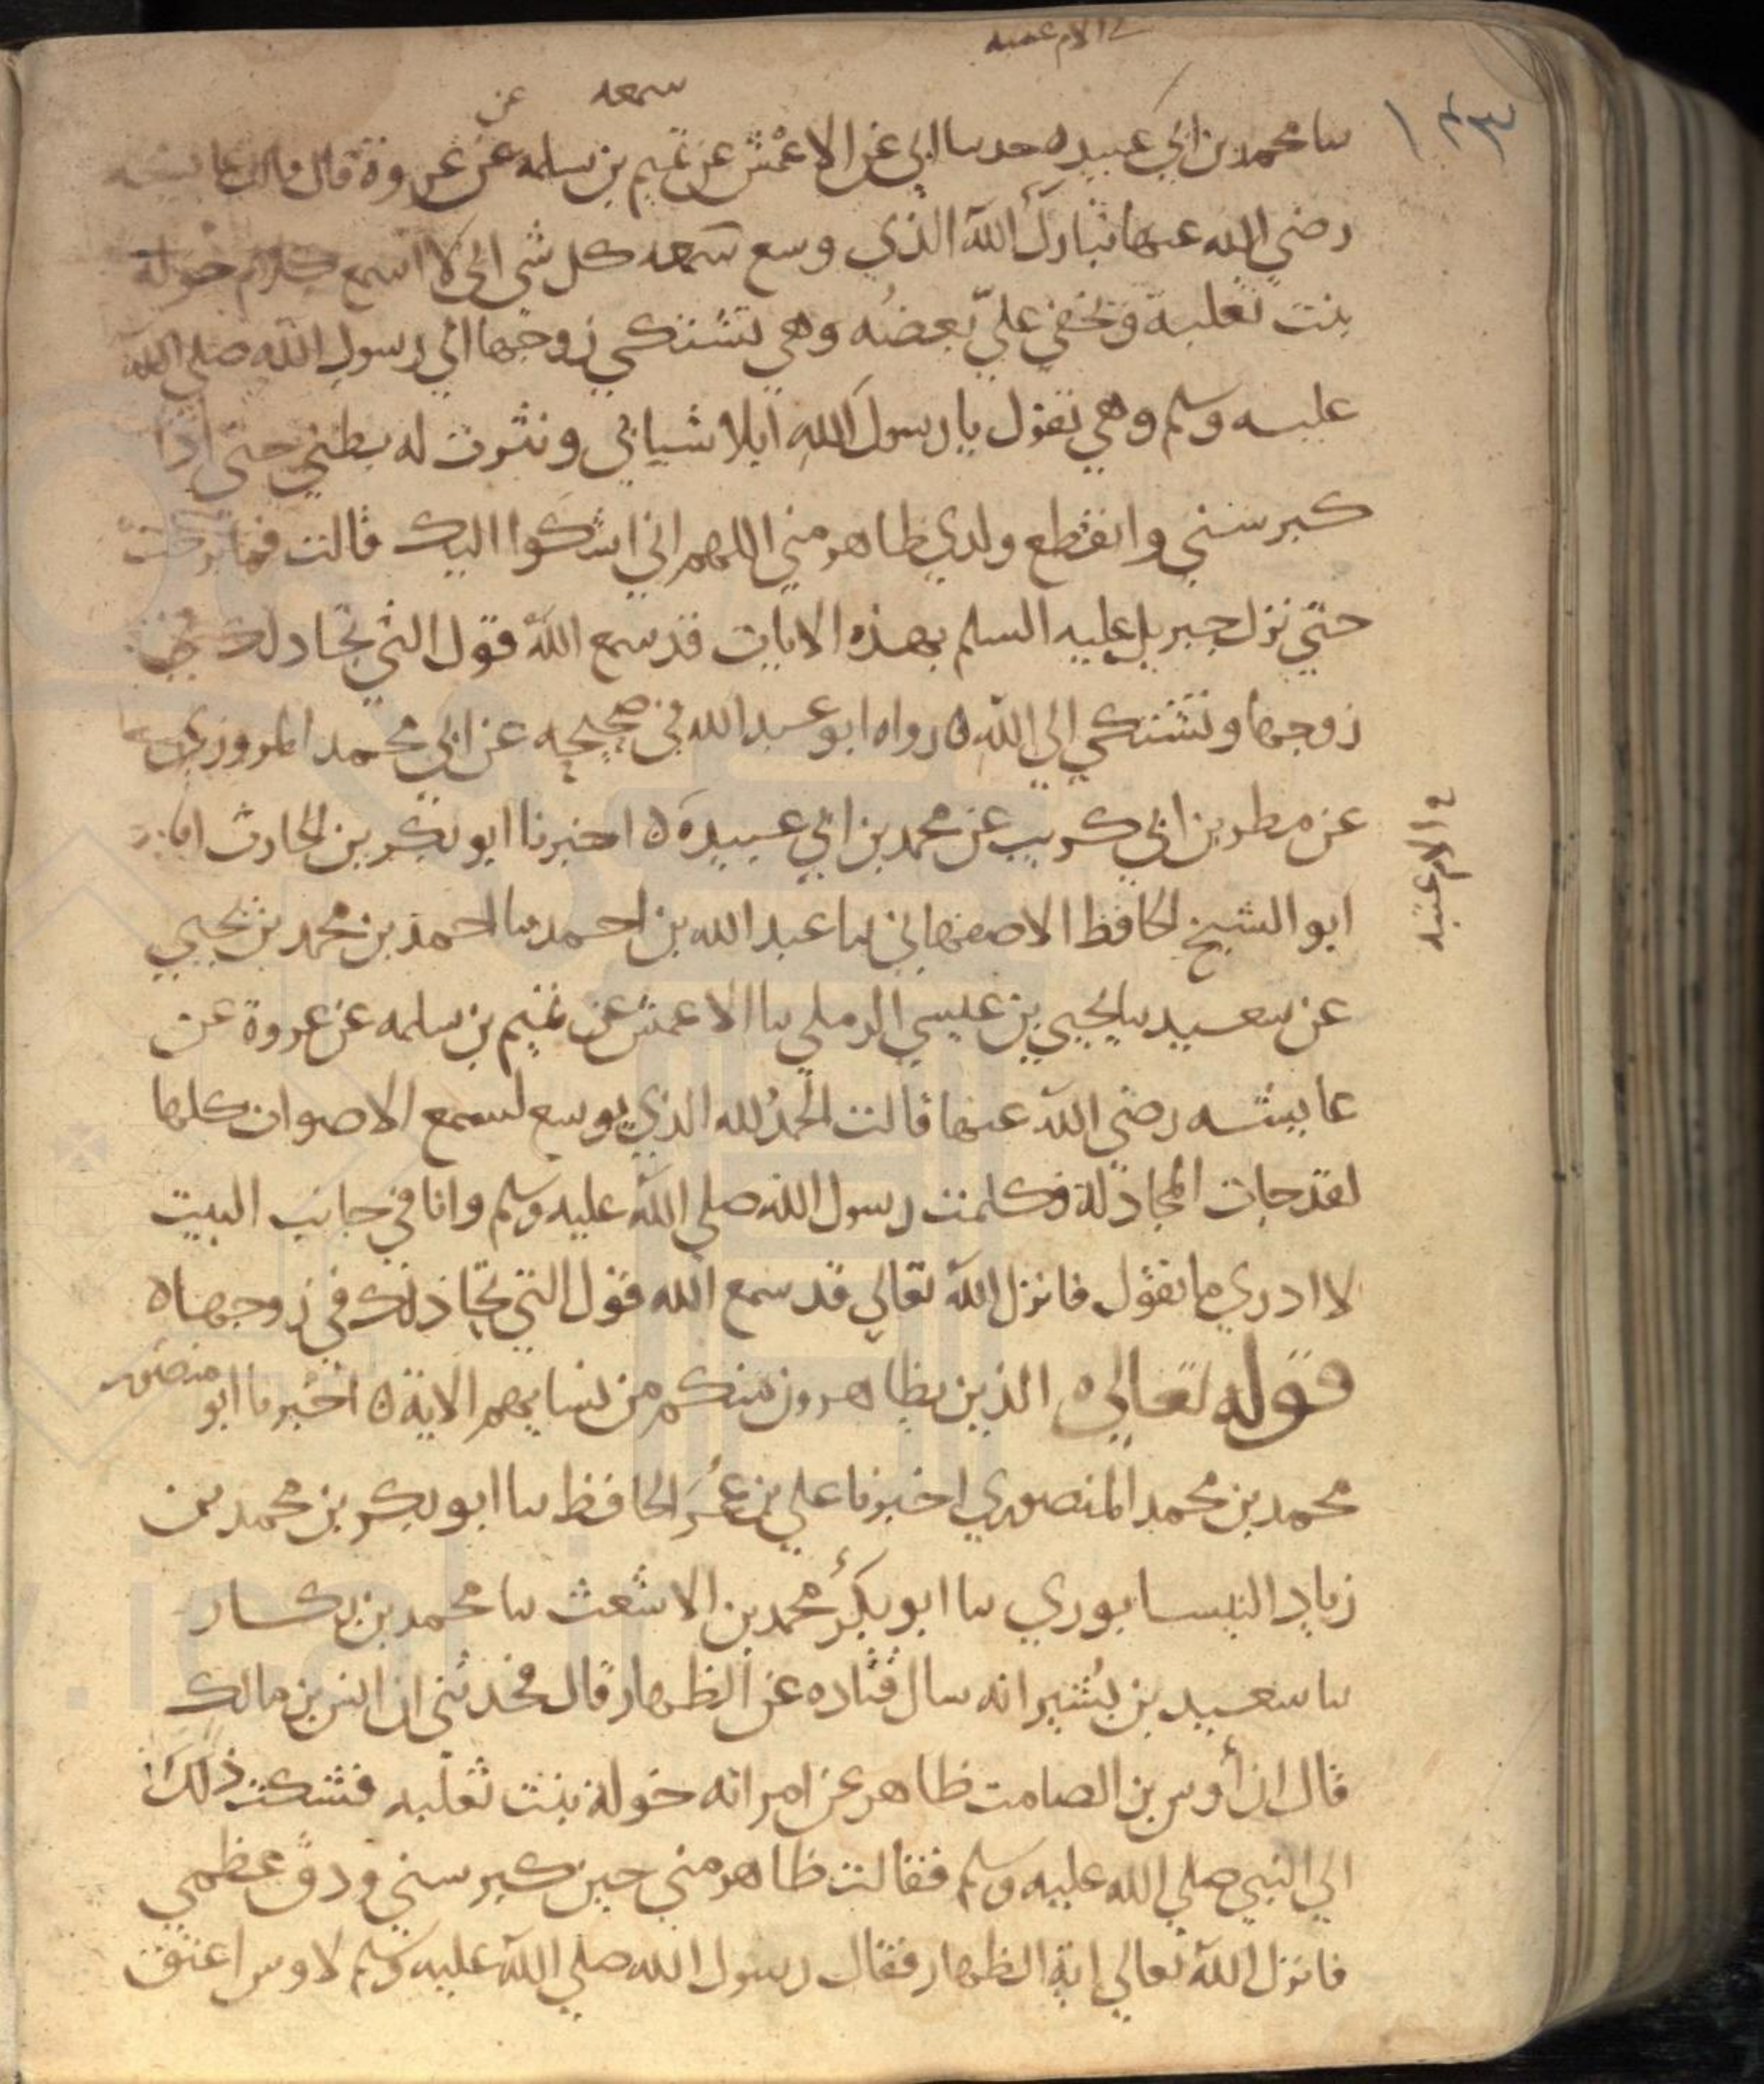 في الام عتبه
سمعه عن
١٤٣
سا محمد بن ابي عبيده حدسا ابي عن الاعمش عن تميم بن سلمه عن عروة قال قالت عايشه
رضي الله عنها تبارك الله الذي وسع سمعه كل شي اني لا اسمع كلام خولة
بنت ثعلبة وتخفي علي بعضه وهي تشتكي زوجها الي رسول الله صلي الله
عليه وسلم وهي تقول يا رسول الله ابلا شبابي ونثرت له بطني حتي اذا
كبر سني وانقطع ولدي ظاهر مني اللهم اني اشكوا اليك قالت فما برحت
حتي نزل جبريل عليه السلم بهذه الايات قد سمع الله قول التي تجادلك في
زوجها وتشتكي الي الله ه رواه ابو عبد الله في صحيحه عن ابي محمد المروزي
عن مطر بن ابي كريب عن محمد بن ابي عبيدة ه اخبرنا ابو بكر بن الحارث انا
في الام عتبه
ابو الشيخ الحافظ الاصفهاني سا عبد الله بن احمد سا احمد بن محمد بن يحيي
عن سعيد سا يحيي بن عيسي الرملي سا الاعمش عن تميم بن سلمه عن عروة عن
عايشه رضي الله عنها قالت الحمد لله الذي يوسع لسمع الاصوات كلها
لقد جات المجادلة فكلمت رسول الله صلي الله عليه وسلم وانا في جانب البيت
لا ادري ما تقول فانزل الله تعالي قد سمع الله قول التي تجادلك في زوجها ه
قوله تعالي ه الذين يظاهرون منكم من نسايهم الاية ه اخبرنا ابو منصور
محمد بن محمد المنصوري اخبرنا علي بن عمر الحافظ سا ابو بكر بن محمد بن
زياد النيسابوري سا ابو بكر محمد بن الاشعث سا محمد بن بكار
سا سعيد بن بشير انه سال قتاده عن الظهار قال فحدثني ان انس بن مالك
قال ان أوس بن الصامت ظاهر عن امراته خولة بنت ثعلبه فشكت ذلك
الي النبي صلي الله عليه وسلم فقالت ظاهر مني حين كبر سني ودق عظمي
فانزل الله تعالي اية الظهار فقال رسول الله صلي الله عليه وسلم لاوس اعتق